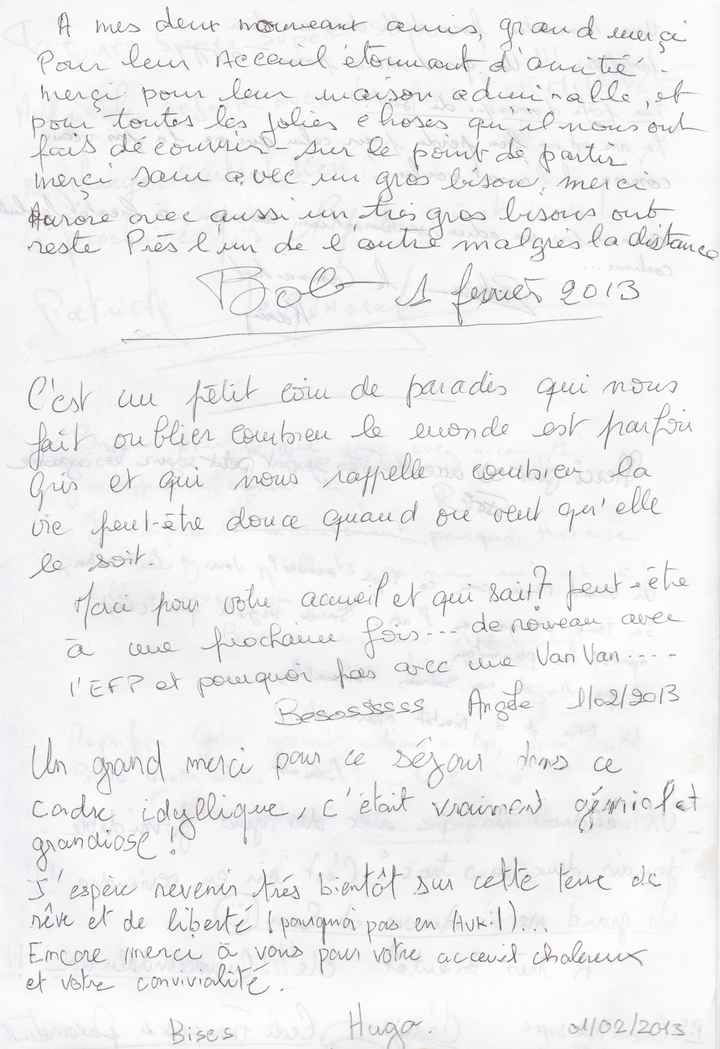 A mes deux nouveaux amis, grand merçi
Pour leur Acceuil étonnant d'amitié.
merçi pour leur maison admirable, et
pour toutes les jolies choses qu'il nous ont
fais découvrir sur le point de partir
merçi Sam avec un gros bison, merci
Aurore avec aussi un très gros bisous ont
reste Près l'un de l'autre malgrès la distance
Bob 1 fevrier 2013
C'est un pétit coin de paradis qui nous
fait oublier combien le monde est parfois
gris et qui nous rappelle combien la
vie peut-être douce quand on veut qu'elle
le soit.
Merci pour votre accueil et qui sait? peut-être
à une prochaine fois... de nouveau avec
l'EFP et pourquoi pas avec une Van Van.....
Besosssss Angèle 1/02/2013
Un grand merci pour ce séjour dans ce
cadre idyllique, c'était vraiment génial et
grandiose!
J'espère revenir très bientôt sur cette terre de
rêve et de liberté (pourquoi pas en Avril)...
Encore merci à vous pour votre acceuil chaleureux
et votre convivialité.
Bises Hugo. 01/02/2013